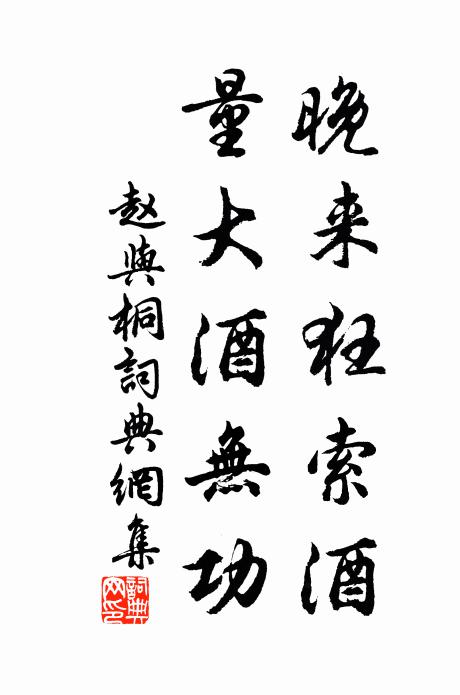 晚来狂索酒
量大酒無功
赵與桐詞典網集
詞典網印